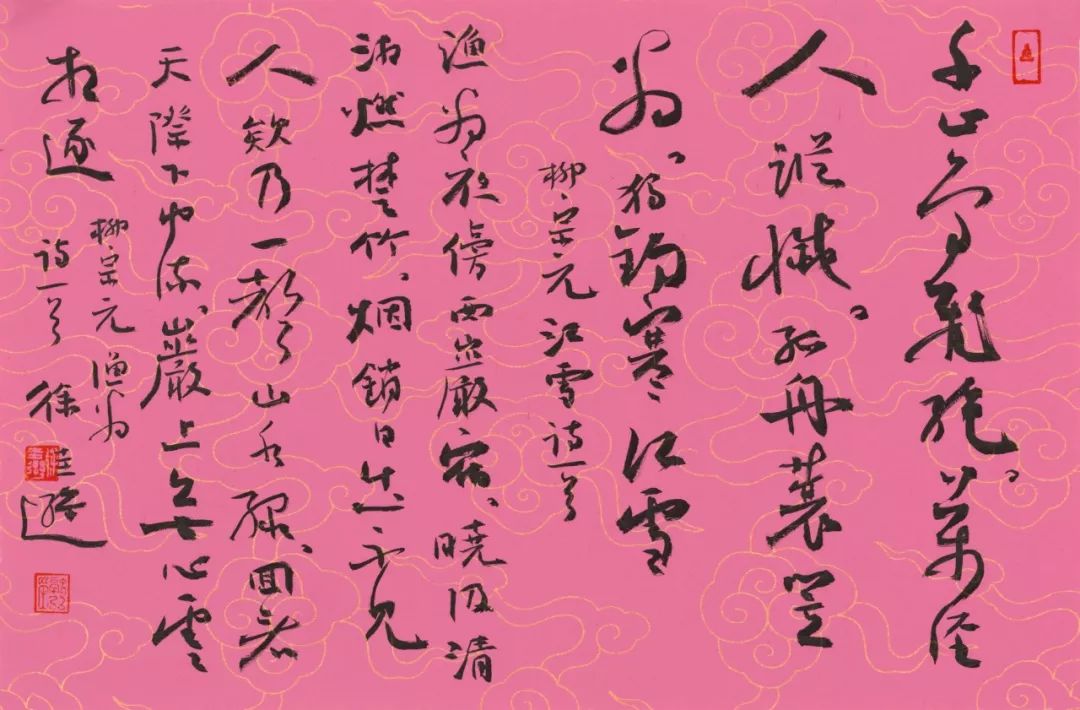 千山鸟飛绝。萬径
人踪滅。孤舟蓑笠
翁。独钓寒江雪
柳宗元江雪诗一首
渔翁夜傍西巖宿。晓汲清
湘燃楚竹。烟鎖日出不见
人欸乃一聲山水绿。回看
天際下中流。巖上無心雲
相逐
柳宗元渔翁
诗一首
徐